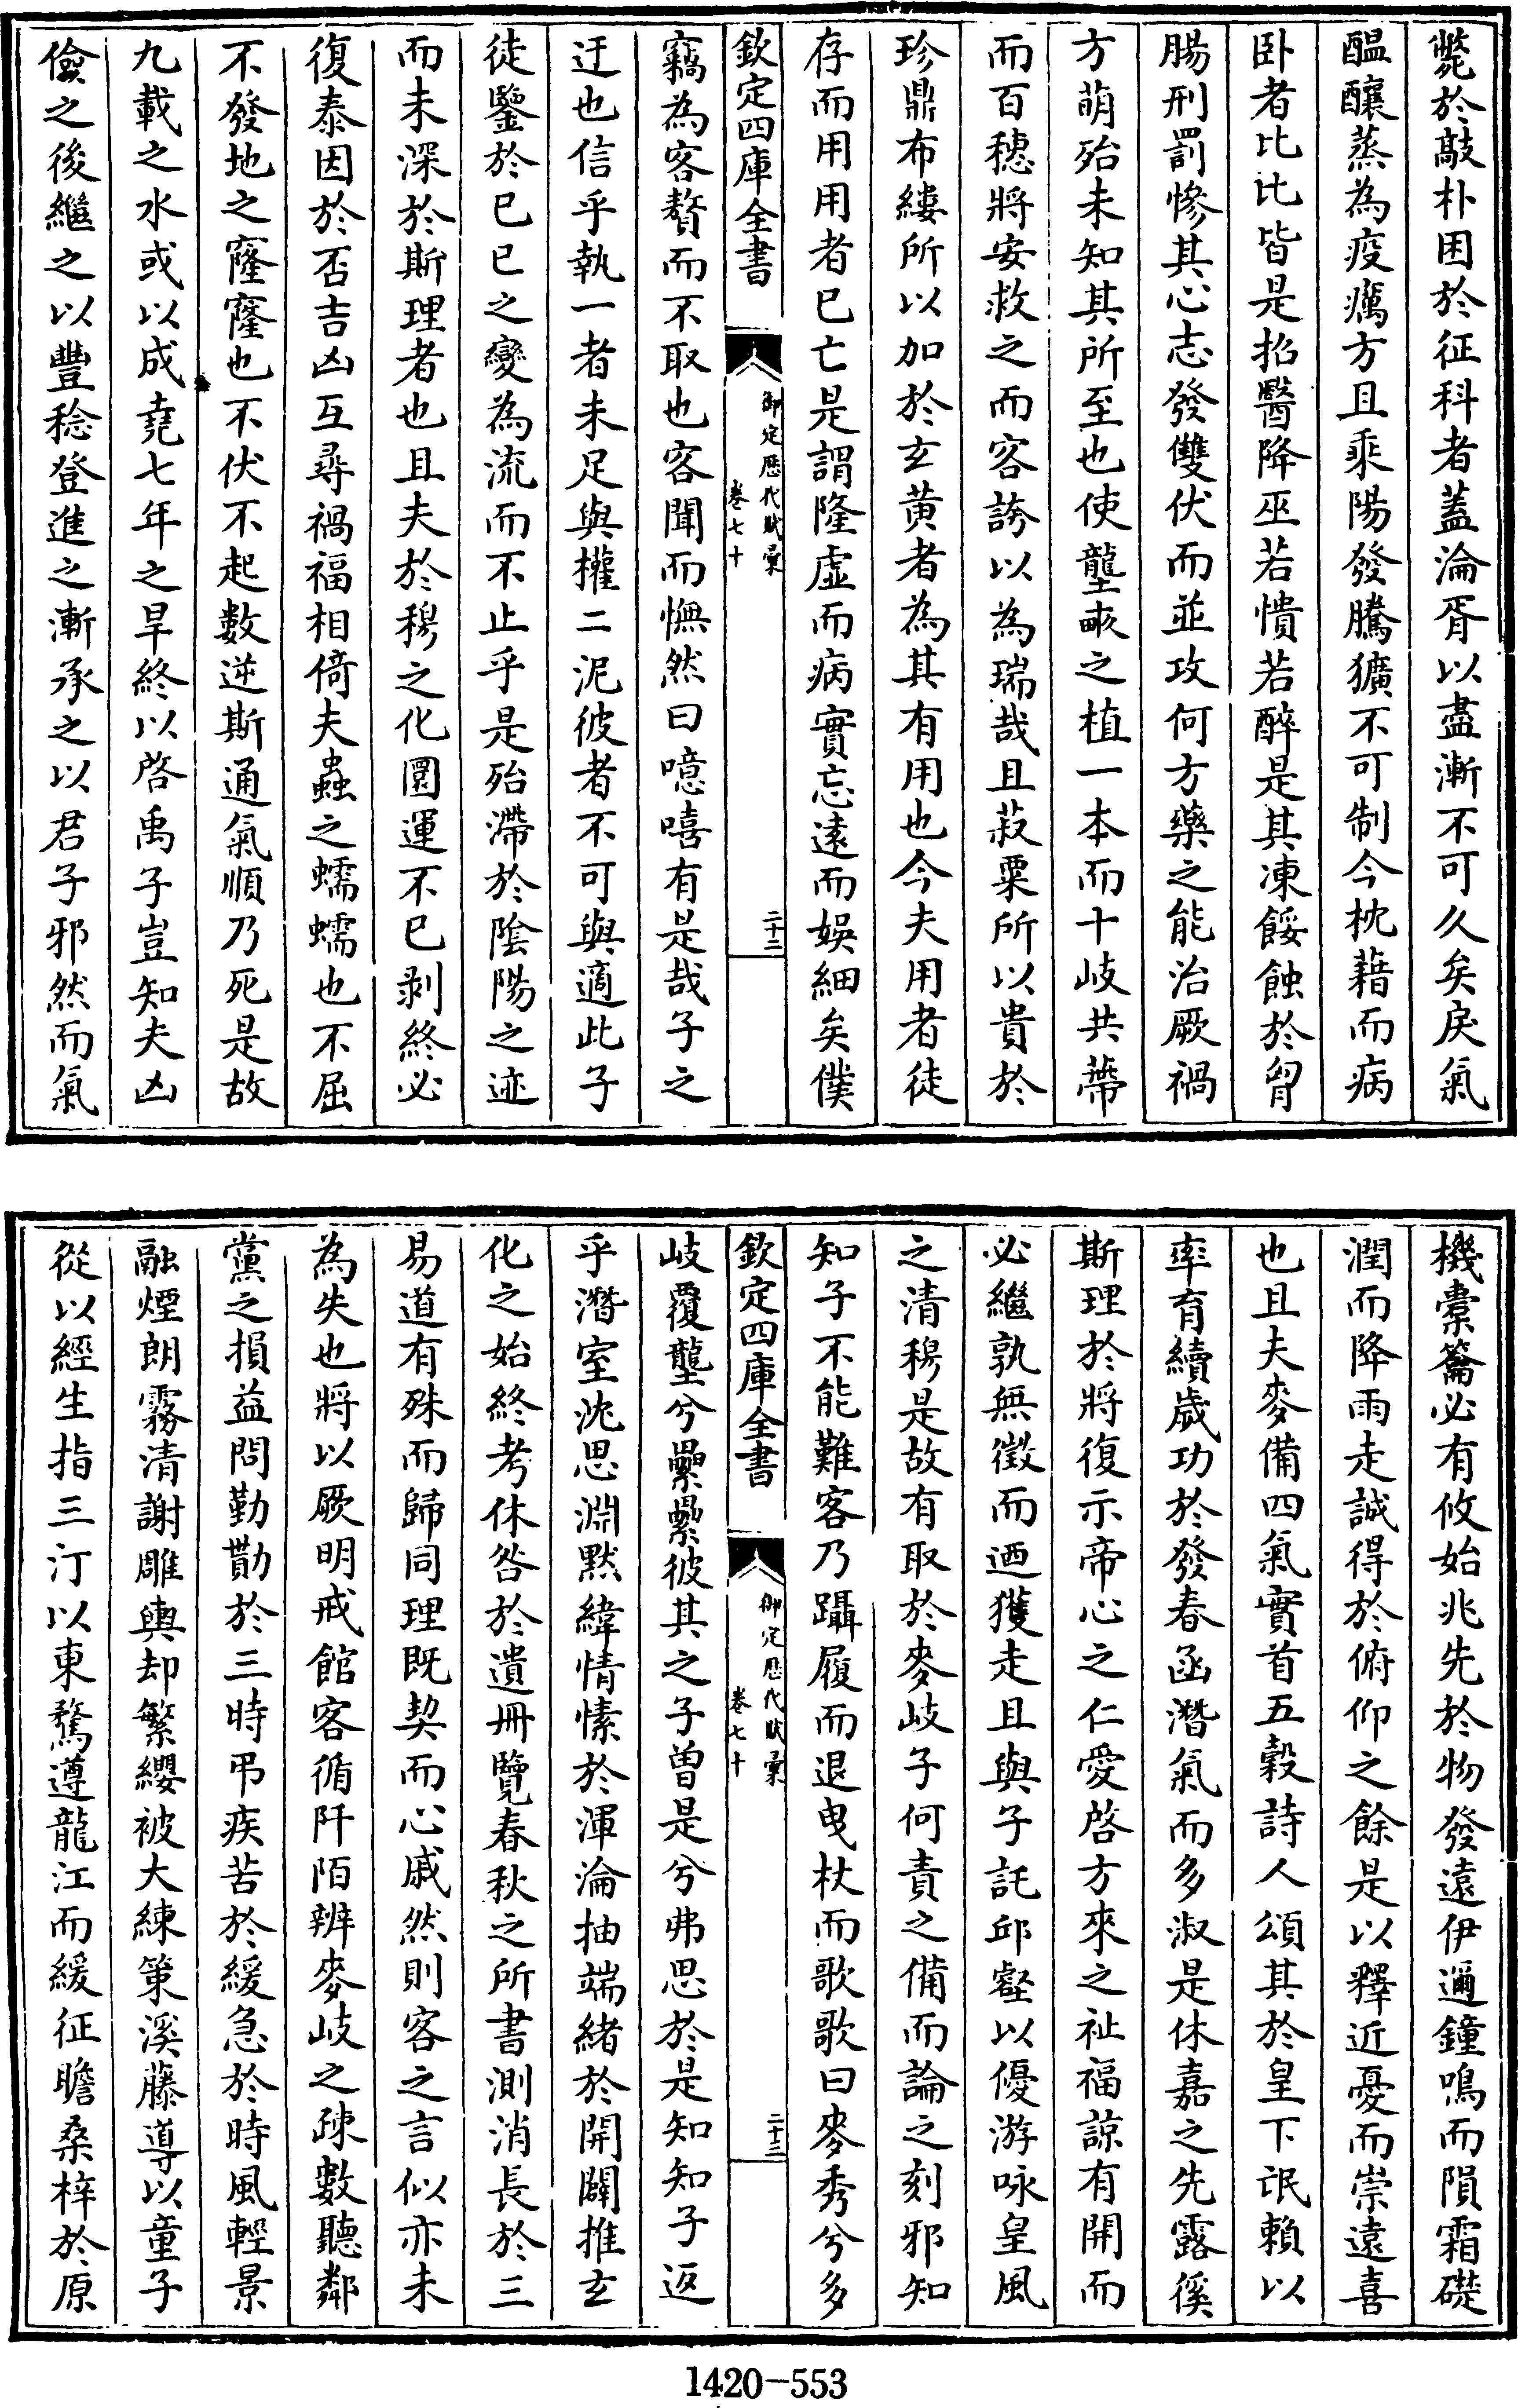 斃於敲朴困於征科者蓋淪胥以盡漸不可久矣戾氣
醖釀蒸為疫癘方且乘陽發騰獷不可制今枕藉而病
卧者比比皆是招醫降巫若憒若醉是其凍餒蝕於胃
腸刑罰慘其心志發雙伏而並攻何方藥之能治厥禍
方萌殆未知其所至也使壟畝之植一本而十岐共蔕
而百穗將安救之而客誇以為瑞哉且菽粟所以貴於
珍鼎布縷所以加於玄黄者為其有用也今夫用者徒
存而用用者已亡是謂隆虚而病實忘逺而娱細矣僕
欽定四庫全書
御定歴代賦彚
卷七十
二十二
竊為客贅而不取也客聞而憮然曰噫嘻有是哉子之
迂也信乎執一者未足與權二泥彼者不可與適此子
徒鑒於已已之變為流而不止乎是殆滯於隂陽之迹
而未深於斯理者也且夫於穆之化圜運不已剥終必
復泰因於否吉凶互尋禍福相倚夫蟲之蠕蠕也不屈
不發地之窿窿也不伏不起數逆斯通氣順乃死是故
九載之水或以成堯七年之旱終以啓禹子豈知夫凶
儉之後繼之以豐稔登進之漸承之以君子邪然而氣
機橐籥必有攸始兆先於物發遠伊邇鐘鳴而隕霜礎
潤而降雨走誠得於俯仰之餘是以釋近憂而崇遠喜
也且夫麥備四氣實首五穀詩人頌其於皇下氓賴以
率育續歲功於發春函潛氣而多淑是休嘉之先露徯
斯理於將復示帝心之仁愛啓方來之祉福諒有開而
必繼孰無徵而迺獲走且與子託邱壑以優游咏皇風
之清穆是故有取於麥岐子何責之備而論之刻邪知
知子不能難客乃躡履而退曳杖而歌歌曰麥秀兮多
欽定四庫全書
御定歴代賦彚
卷七十
二十三
岐覆壟兮纍纍彼其之子曽是兮弗思於是知知子返
乎潛室沈思淵黙緯情愫於渾淪抽端緒於開闢推玄
化之始終考休咎於遺冊覽春秋之所書測消長於三
易道有殊而歸同理既契而心戚然則客之言似亦未
為失也將以厥明戒館客循阡陌辨麥岐之疎數聽鄰
黨之損益問勤勩於三時弔疾苦於緩急於時風輕景
融煙朗霧清謝雕輿却繁纓被大練策溪藤導以童子
從以經生指三汀以東騖遵龍江而緩征瞻桑梓於原
1420-553